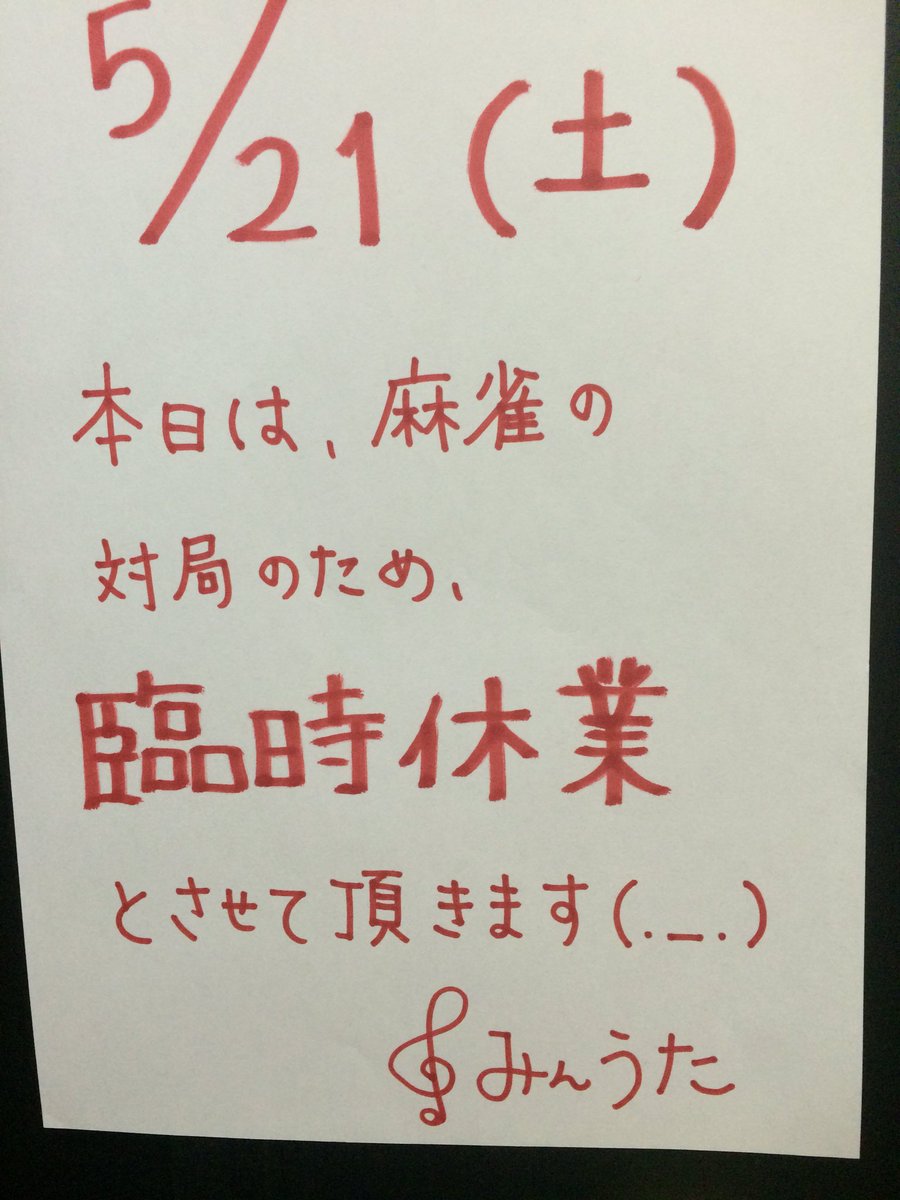 5/21(土)
本日は、麻雀の
対局のため、
臨時休業
とさせて頂きます(._.)
みんうた